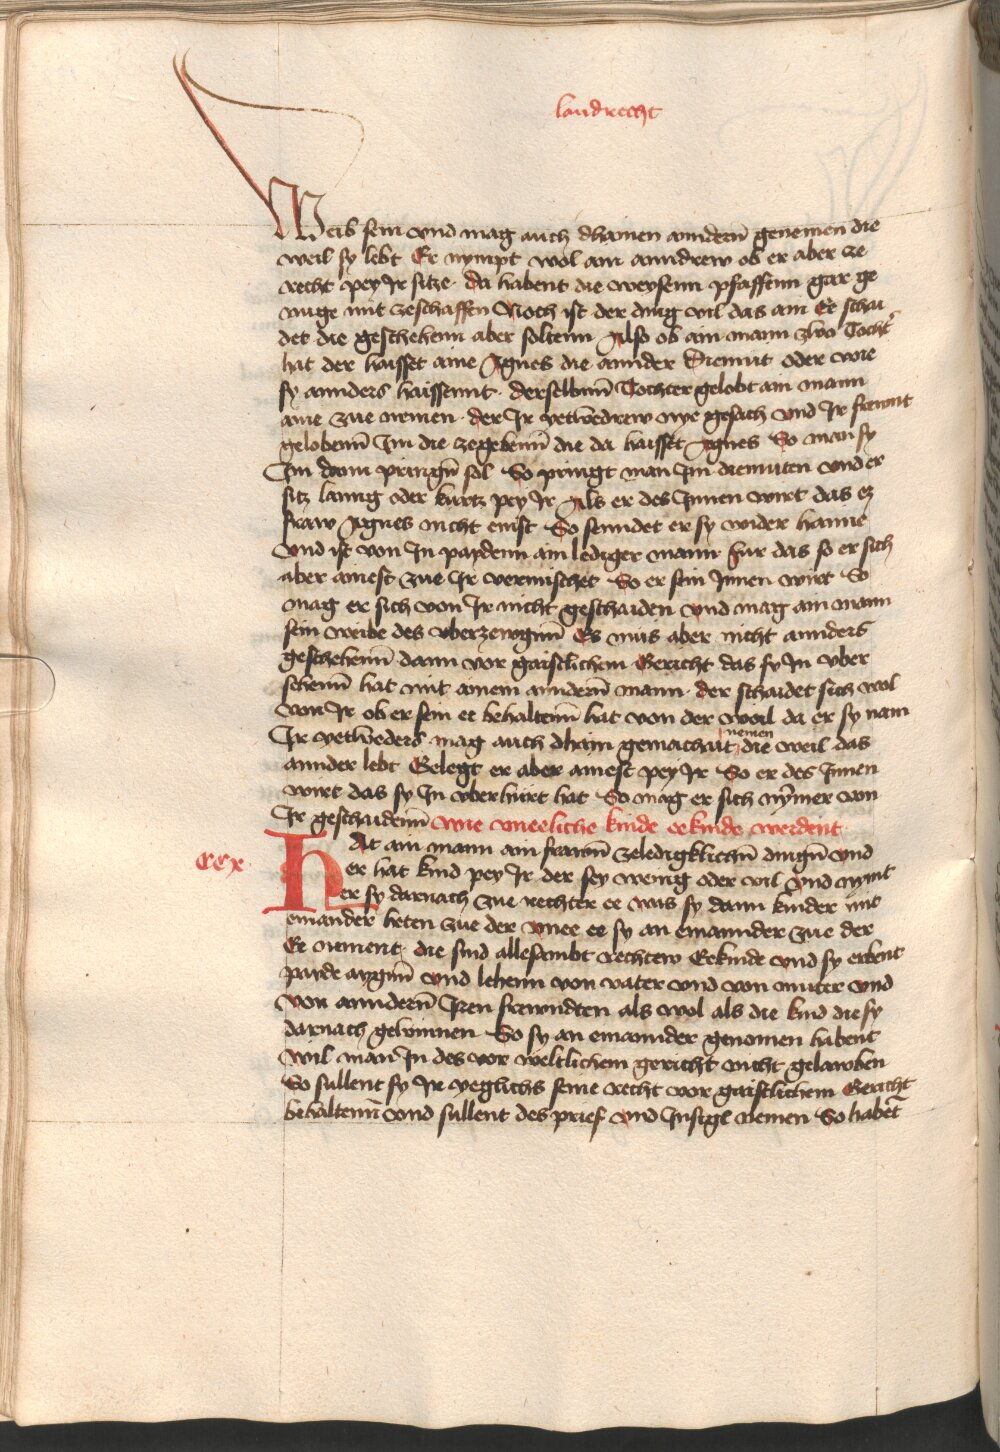 landrecht
Weib sein vnd mag auch dhainen anndern̄ genemen die
weil sy lebt Er nympt wol ain anndrew ob er aber ze
recht pey Jr sitze · da habent die weysenn pfaffenn gar ge
nuge mit zeschaffen Noch ist der ding vil das ain Ee schai
det die geschehenn aber soltenn Also ob ain mann zwo Tocht̉
hat der haisset aine Agnes die annder Diemut oder wie
sy annders haissennt · derselbnn̄ Tochter gelobt ain mann
aine zue nemen · der Jr yetwedrew nye gesach vnd Jr frewnt
gelobenn̄ Jm die zegebenn̄ die da haisset Agnes So man sy
Jm dann pringn̄ sol So pringt man Jm diemuten vnd er
sitz lanng oder kurtz pey Jr Als er des Jnnen wirt das ez
fraw Agnes nicht enist So senndet er sy wider haime
vnd ist von Jn paydenn ain lediger mann fur das so er sich
aber ainest zue Jr vermischet So er sein Jnnen wirt So
mag er sich von Jr nicht geschaiden vnd mag ain mann
sein weibe des vberzewgnn̄ Es mus aber nicht annders
geschehenn̄ dann vor gaistlichem Gericht das sy Jn vber
sehenn̄ hat mit ainem anndern̄ mann · der schaidet sich wol
von Jr ob er sein ee behaltenn̄ hat von der weil da er sy nam
Jr yetweders mag auch dhain gemachait nemen die weil das
annder lebt Gelegt er aber ainest pey Jr So er des Jnnen
wirt das sy Jn vberhurt hat So mag er sich nym̄er von
Jr geschaidenn̄ wie vneeliche kinde eekinde werdent
CCx · Hat ain mann ain frawn̄ zeledigklichn̄ dingn̄ vnd
er hat kind pey Jr der sey wenig oder vil vnd nymt
er sy darnach zue rechter ee was sy dann kinder mit
einander heten zue der vnee ee sy an einannder zue der
Ee nement · die sind allesambt rechtew Eekinde vnd sy erbent
payde aygnn̄ vnd lehenn von vater vnd von muter vnd
von anndern̄ Jren frewndten als wol als die kind die sy
darnach gewinnen So sy an einannder genomen habent
wil man Jn des vor weltlichem gericht nicht gelawben
So sullent sy Jr yeglichs seine recht vor gaistlichem Gericht
behaltenn̄ vnd sullent des prief vnd Jnsigl nemen So habet̄